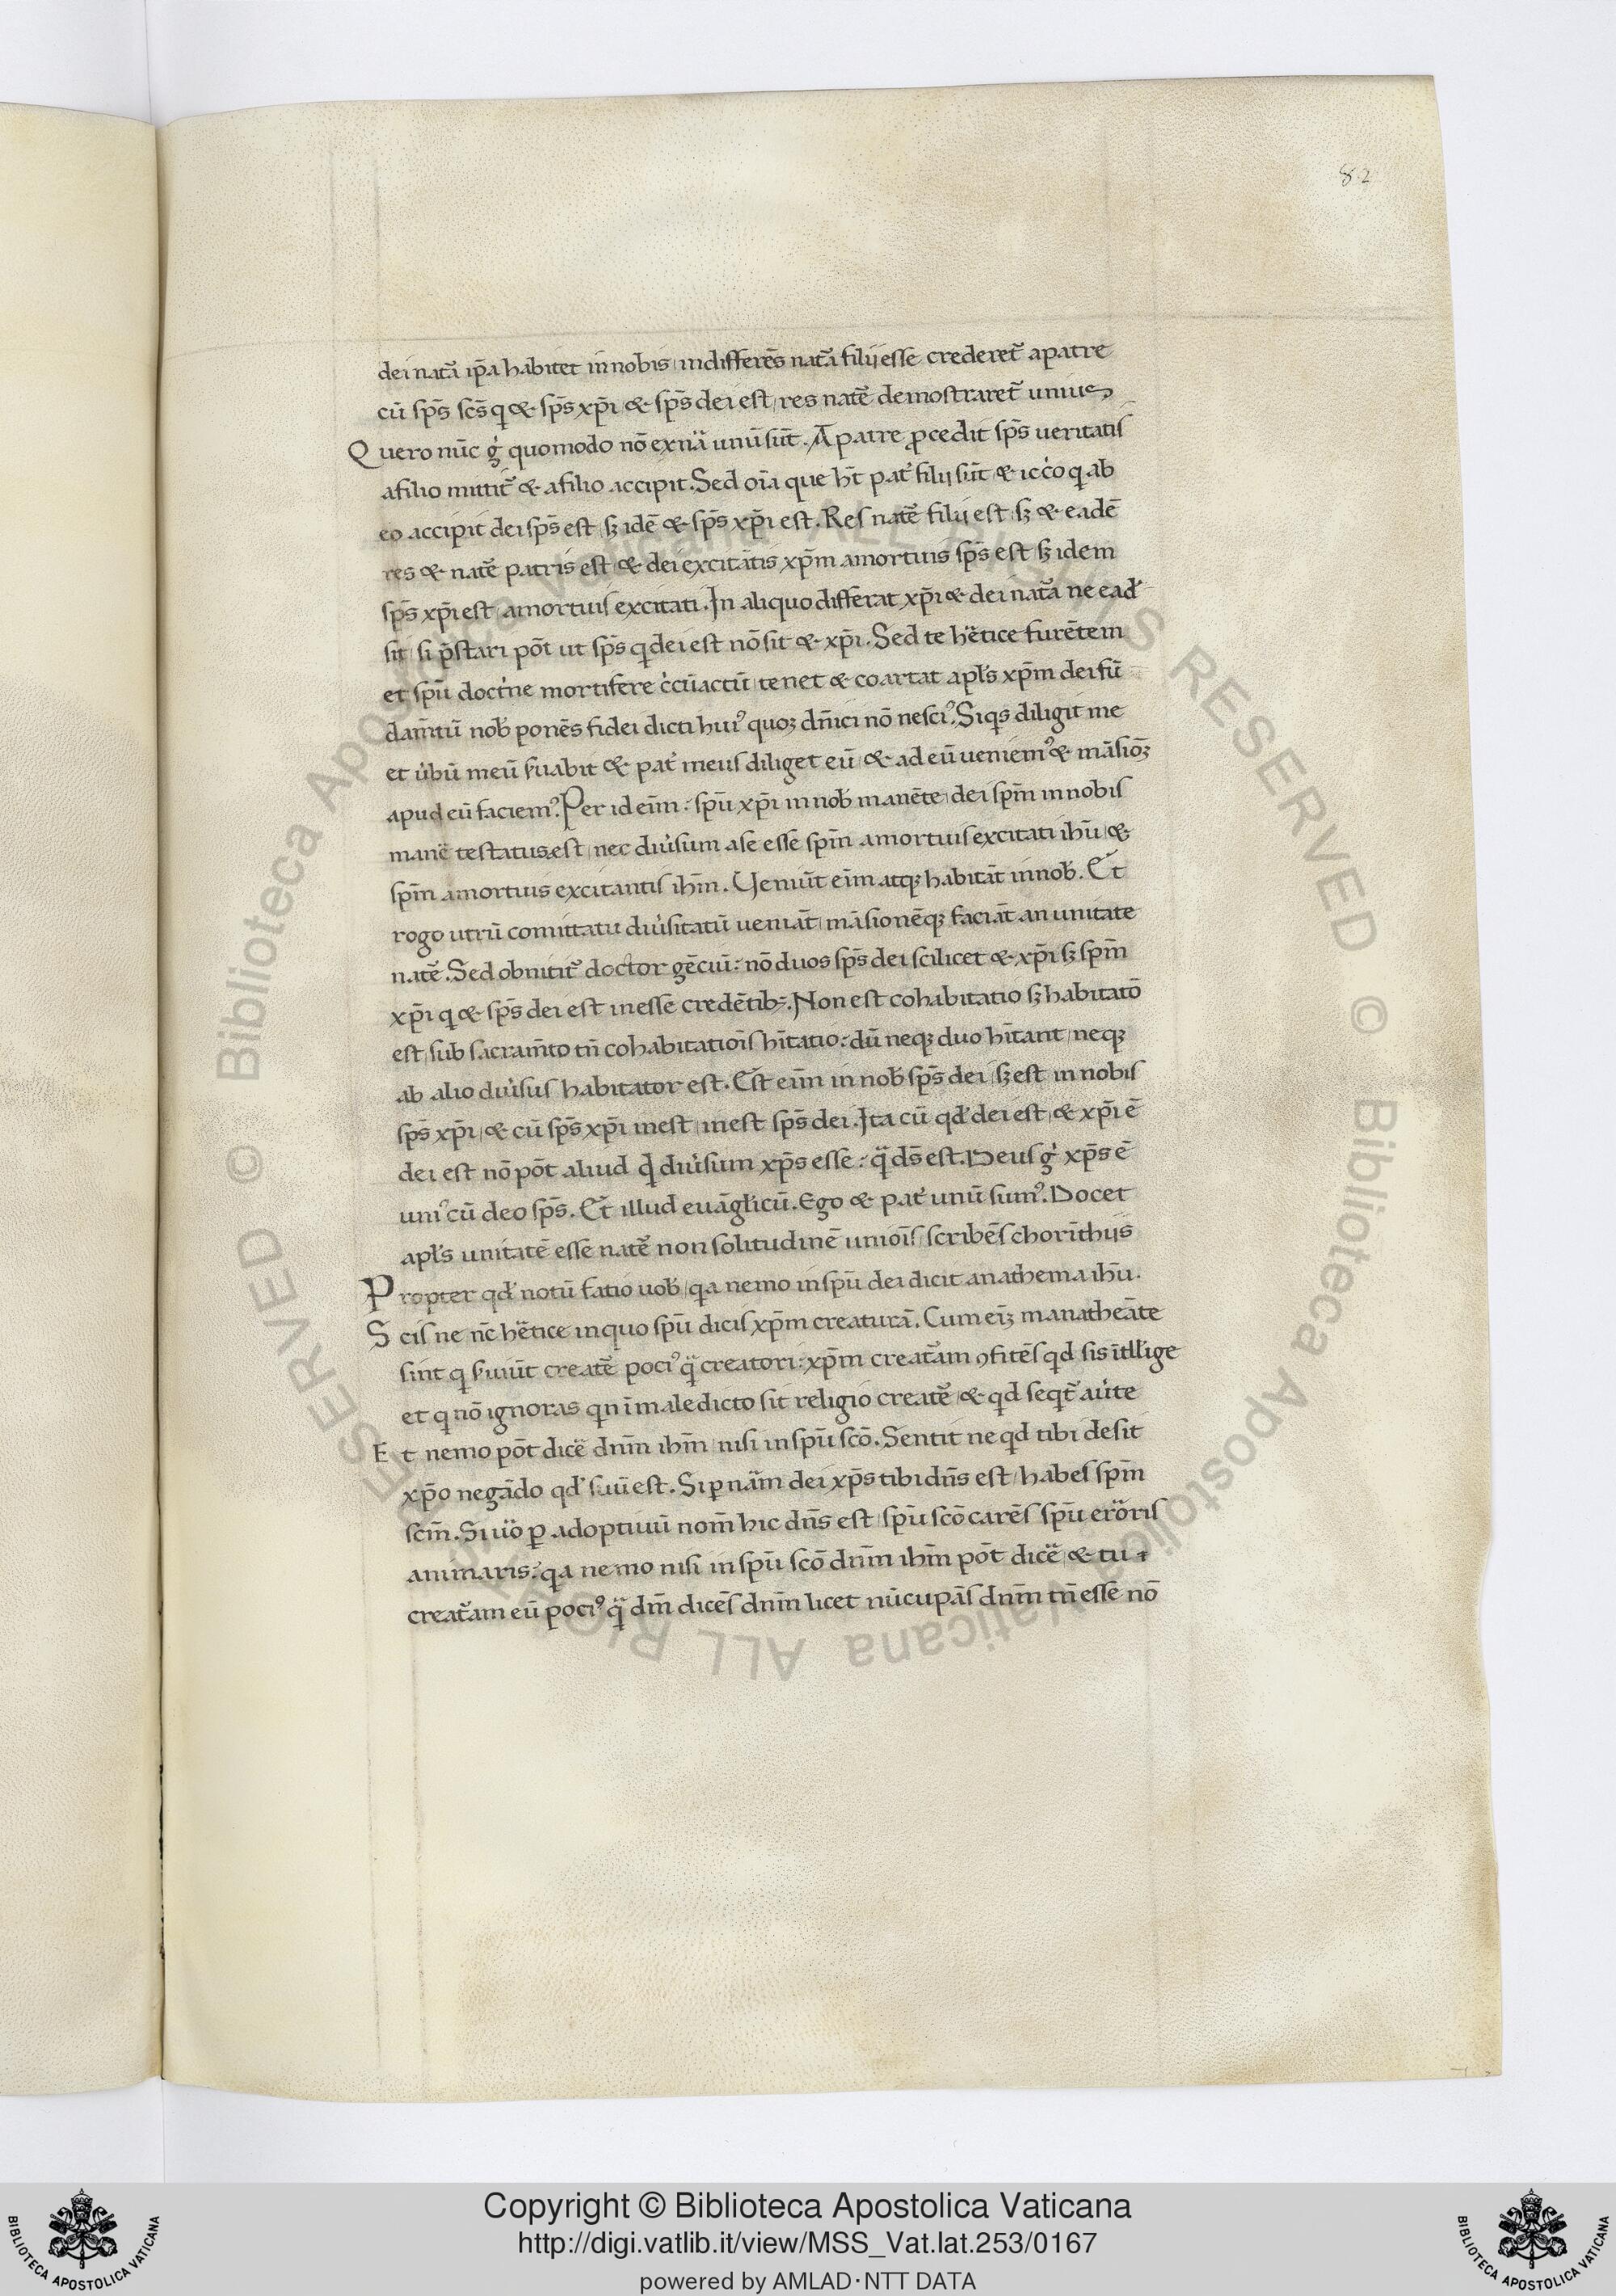 82
dei nat᷑a ip̄a habitet innobis indifferēs nat᷑a filij esse crederet᷑ apatre
cū sp̄s sc̄s q & sp̄s xp̄i & sp̄s dei est res nat᷑e demostraret᷑ unius
Quero nūc g̊ quomodo nō exnā unū sūt. A patre ꝓcedit sp̄s ueritatis
afilio mittit᷑ & afilio accipit. Sed oīa que hn̄t pat̓ filij sūt & icc̊o q ab
eo accipit dei sp̄s est sꝫ idē & sp̄s xp̄i est. Res nat᷑e filij est sꝫ & eadē
res & nat᷑e patris est & dei excitātis xp̄m amortuis sp̄s est sꝫ idem
sp̄s xp̄i est amortuis excitati. In aliquo differat xp̄i & dei nat᷑a ne ead̓
sit si p̄stari pōt ut sp̄s q dei est nō sit & xp̄i. Sed te hētice furētem
et sp̄u doct̓ne mortifere c̓cūactū tenet & coartat apl̓s xp̄m dei fū
dam̄tū nob̓ ponēs fidei dicti huiꝰ quoꝝ dn̄ici nō nesciꝰ. Siqs diligit me
et u̓bū meū s̓uabit & pat̓ meus diliget eū & ad eū ueniemꝰ & māsioꝫ
apud eū faciemꝰ. Per id eīm: sp̄u xp̄i in nob̓ manēte dei sp̄m in nobis
manē testatus est nec diu̓sum ase esse sp̄m amortuis excitati ih̄u &
sp̄m amortuis excitantis ih̄m. Ueniūt eīm atqꝫ habitāt in nob̓. Et
rogo utrū comittatu diu̓sitatū ueniāt māsionēqꝫ faciāt an unitate
nat᷑e. Sed obnitit᷑ doctor gēciū: nō duos sp̄s dei scilicet & xp̄i sꝫ sp̄m
xp̄i q & sp̄s dei est inesse credētibꝫ. Non est cohabitatio sꝫ habitatō
est sub sacram̄to tn̄ cohabitatiōis hītatio: dū neqꝫ duo hītant neqꝫ
ab alio diu̓sus habitator est. Est eīm in nob̓ sp̄s dei sꝫ est in nobis
sp̄s xp̄i & cū sp̄s xp̄i inest inest sp̄s dei. Ita cū qd̓ dei est & xp̄i ē
dei est nō pōt aliud qd̓ diu̓sum xp̄s esse: q̄ ds̄ est. Deus g̊ xp̄s ē
unꝰ cū deo sp̄s. Et illud euāgl̓icū. Ego & pat̓ unū sumꝰ. Docet
apl̓s unitatē esse nat᷑e non solitudinē uniōis scribēs chorīthijs
Propter qd̓ notū fatio uob̓ qa nemo in sp̄u dei dicit anathema ih̄u.
Scis ne nc̄ hētice in quo sp̄u dicis xp̄m creaturā. Cum eīꝫ manatheāte
sint q s̓uiūt creat᷑e pociꝰ q̄ creatori: xp̄m creat᷑am ꝯfitēs qd sis ītll̓ige
et q nō ignoras qn ī maledicto sit religio creat᷑e & qd seqt᷑ au̓te
Et nemo pōt dicē dn̄m ih̄m nisi in sp̄u scō. Sentit ne qd tibi desit
xp̄o negādo qd̓ suū est. Si ꝑ nām dei xp̄s tibi dn̄s est habes sp̄m
scm̄. Si uō ꝑ adoptiuū nom̄ hic dn̄s est sp̄u scō carēs sp̄u erōris
animaris: qa nemo nisi in sp̄u scō dn̄m ih̄m pōt dicē & tu
creat᷑am eū pociꝰ q̄ dm̄ dicēs dn̄m licet nūcupās dn̄m tn̄ esse nō
© Biblioteca Apostolica Vaticana ALL RIGHTS RESERVED
Copyright © Biblioteca Apostolica Vaticana
http://digi.vatlib.it/view/MSS_Vat.lat.253/0167
powered by AMLAD·NTT DATA
BIBLIOTECA APOSTOLICA VATICANA
BIBLIOTECA APOSTOLICA VATICANA